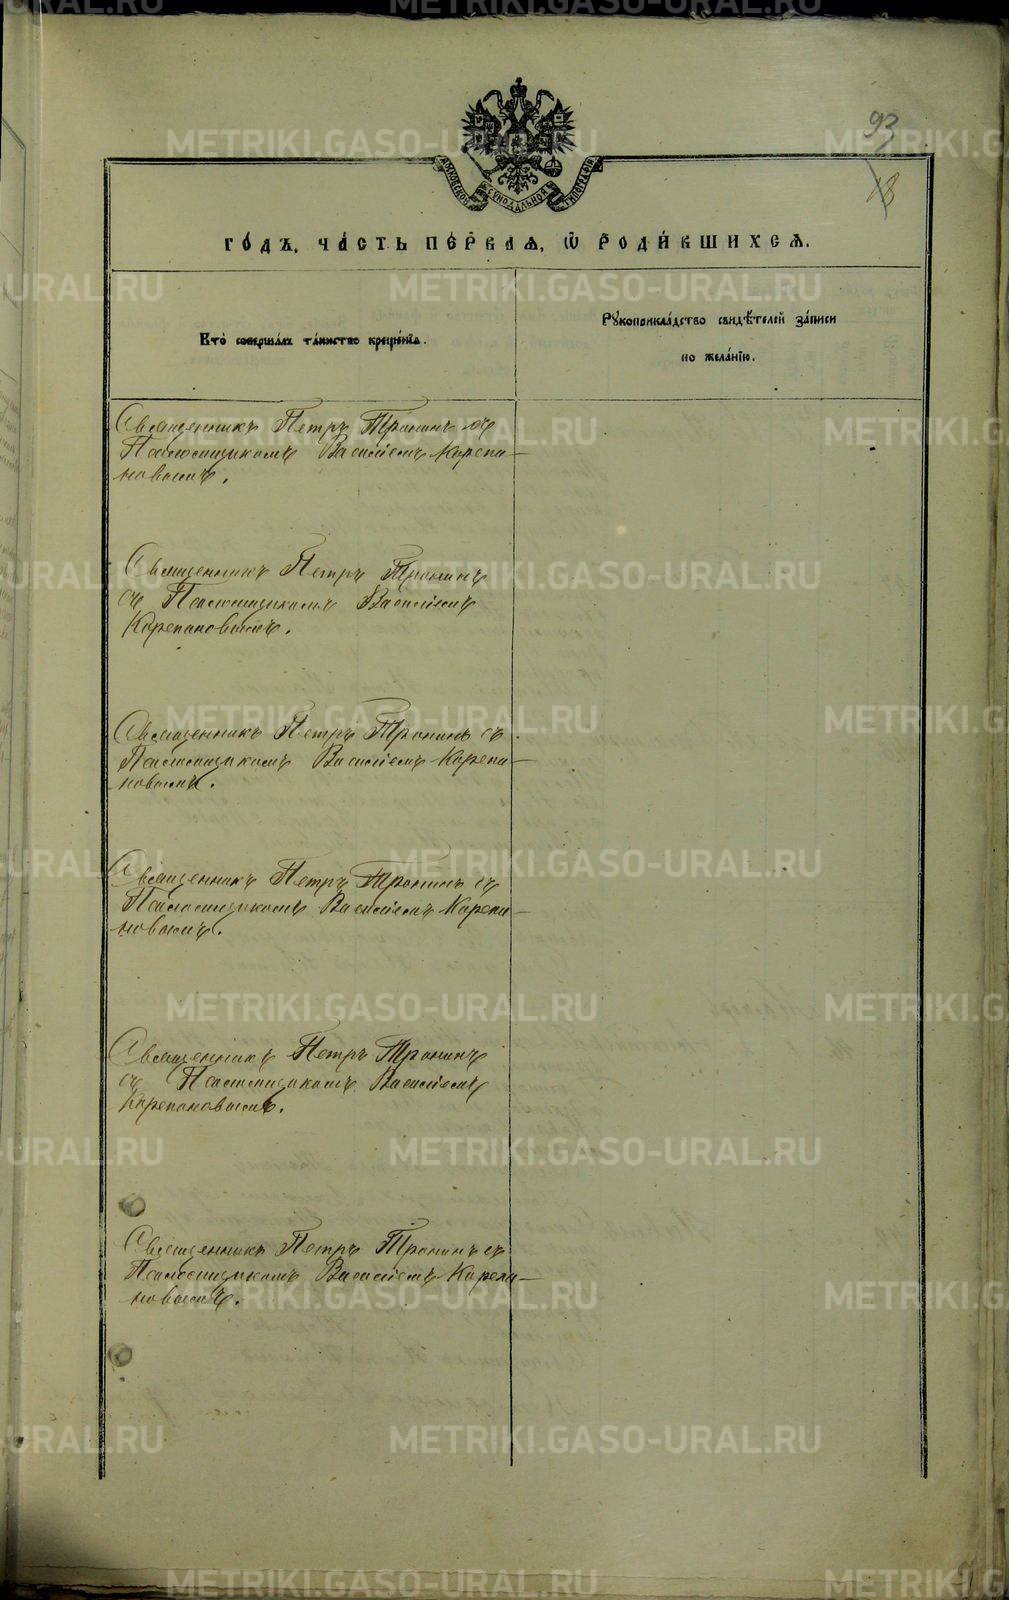 93
18
МОСКОВСКОЙ СѴНОДАЛЬНОЙ ТИПОГРАФІИ
ГО́ДЪ, ЧА́СТЬ ПЕ́РВАѦ, Ѡ҆ РОДИ́ВШИХСѦ.
Кто̀ соверша́лъ та́инство креще́нїѧ.
Рꙋкоприкла́дство свидѣ́телей за́писи
по жела́нїю.
Священникъ Петръ Тронинъ съ
Псаломщикомъ Василіемъ Карепа-
новымъ.
Священникъ Петръ Тронинъ
съ Псаломщикомъ Василіемъ
Карепановымъ.
Священникъ Петръ Тронинъ съ
Псаломщикомъ Василіемъ Карепа-
новымъ.
Священникъ Петръ Тронинъ съ
Псаломщикомъ Василіемъ Карепа-
новымъ.
Священникъ Петръ Тронинъ
съ Псаломщикомъ Василіемъ
Карепановымъ.
Священникъ Петръ Тронинъ съ
Псаломщикомъ Василіемъ Карепа-
новымъ.
METRIKI.GASO-URAL.RU